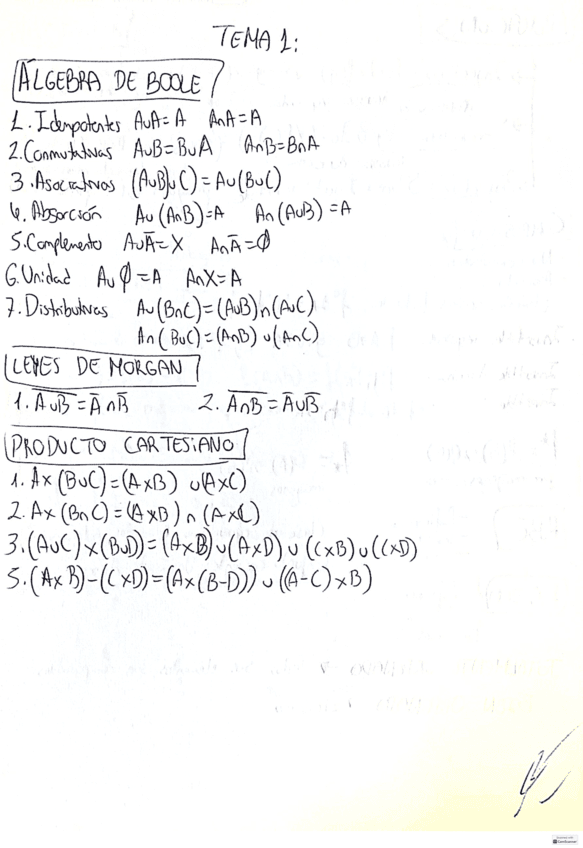 TEMA 1:
ÁLGEBRA DE BOOLE
1. Idempotentes A∪A=A A∩A=A
2. Conmutativas A∪B=B∪A A∩B=B∩A
3. Asociativas (A∪B)∪C)=A∪(B∪C)
4. Absorción A∪(A∩B)=A A∩(A∪B)=A
5. Complemento A∪A̅=X A∩A̅=∅
6. Unidad A∪∅=A A∩X=A
7. Distributivas A∪(B∩C)=(A∪B)∩(A∪C)
A∩(B∪C)=(A∩B)∪(A∩C)
LEYES DE MORGAN
1. A̅∪̅B̅=A̅∩B̅ 2. A̅∩̅B̅=A̅∪B̅
PRODUCTO CARTESIANO
1. A×(B∪C)=(A×B)∪(A×C)
2. A×(B∩C)=(A×B)∩(A×C)
3. (A∪C)×(B∪D)=(A×B)∪(A×D)∪(C×B)∪(C×D)
5. (A×B)-(C×D)=(A×(B-D))∪((A-C)×B)